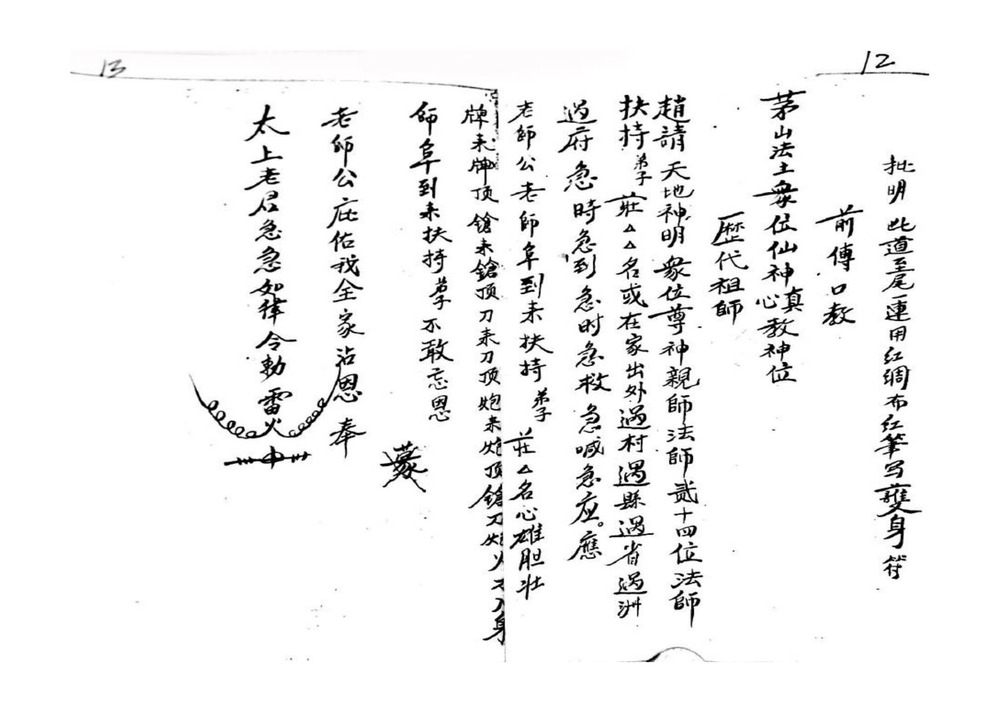 12
批明 此道至尾連用红绸布红筆写護身符
前傳口教
茅山法主衆位仙神真心教神位
歷代祖師
趙請天地神明衆位尊神親師法師贰十四位法師
扶持弟子莊△△名或在家出外過村過縣過省過洲
過府急時急到急时急救急喊急应。應
老師公老師阜到来扶持弟子莊△名心雄胆壮
牌来牌顶鎗来鎗顶刀来刀顶炮来炮顶鎗刀炮火不入身
師阜到来扶持弟子不敢忘恩
老師公庇佑我全家沾恩奉
太上老君急急如律令勅雷火
13